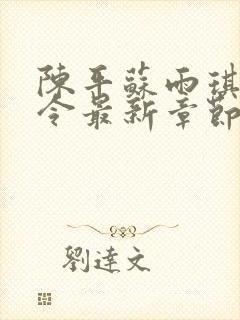 陳平蘇雨琪
令最新章節
劉達文